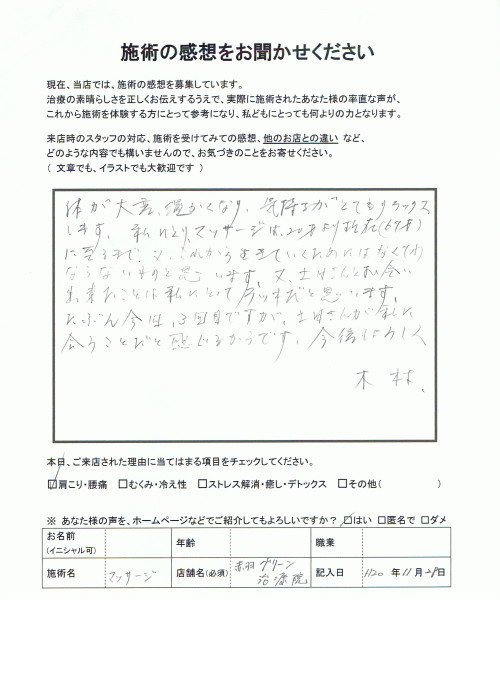 施術の感想をお聞かせください
現在、当店では、施術の感想を募集しています。
治療の素晴らしさを正しくお伝えするうえで、実際に施術されたあなた様の率直な声が、
これから施術を体験する方にとって参考になり、私どもにとっても何よりの力となります。
来店時のスタッフの対応、施術を受けてみての感想、他のお店との違い など、
どのような内容でも構いませんので、お気づきのことをお寄せください。
（ 文章でも、イラストでも大歓迎です ）
体が大変、温かくなり、気持ちがとてもリラックス
します。私にとりマッサージは、20才より現在(67才)
に至るまで、又、これから生きていくためにはなくては
ならないものと思います。又、土田さんとお会い
出来たことは私にとって ラッキだと思います。
たぶん今回、3回目ですが、土田さんが私に
合うことだと感じるからです。今後もよろしく
木村、
本日、ご来店された理由に当てはまる項目をチェックしてください。
□肩こり・腰痛 □むくみ・冷え性 □ストレス解消・癒し・デトックス □その他（ ）
※ あなた様の声を、ホームページなどでご紹介してもよろしいですか？ □はい □匿名で □ダメ
お名前 年齢 職業
(イニシャル可)
施術名 マッサージ 店舗名(必須) 赤羽グリーン治療院 記入日 H20 年 11 月 29 日